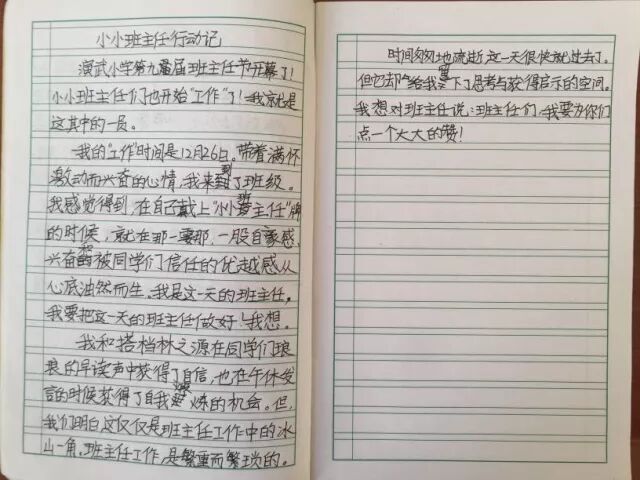 小小班主任行动记
演武小学第九届班主任节开幕了！
小小班主任们也开始“工作”了！我就是
这其中的一员。
我的“工作”时间是12月26日。带着满怀
激动而兴奋的心情，我来到了班级。
我感觉得到，在自己戴上“小小班主任”牌
的时候，就在那一霎那，一股自豪感、
兴奋和被同学们信任的优越感从
心底油然而生。我是这一天的班主任，
我要把这一天的班主任做好！我想。
我和搭档林之源在同学们琅
琅的早读声中获得了自信，也在午休发
言的时候获得了自我锻炼的机会。但，
我们明白这仅仅是班主任工作中的冰
山一角。班主任工作，是繁重而繁琐的。
时间匆匆地流逝，这一天很快就过去了。
但它却给我留下了思考与获得启示的空间。
我想对班主任说：班主任们，我要为你们
点一个大大的赞！